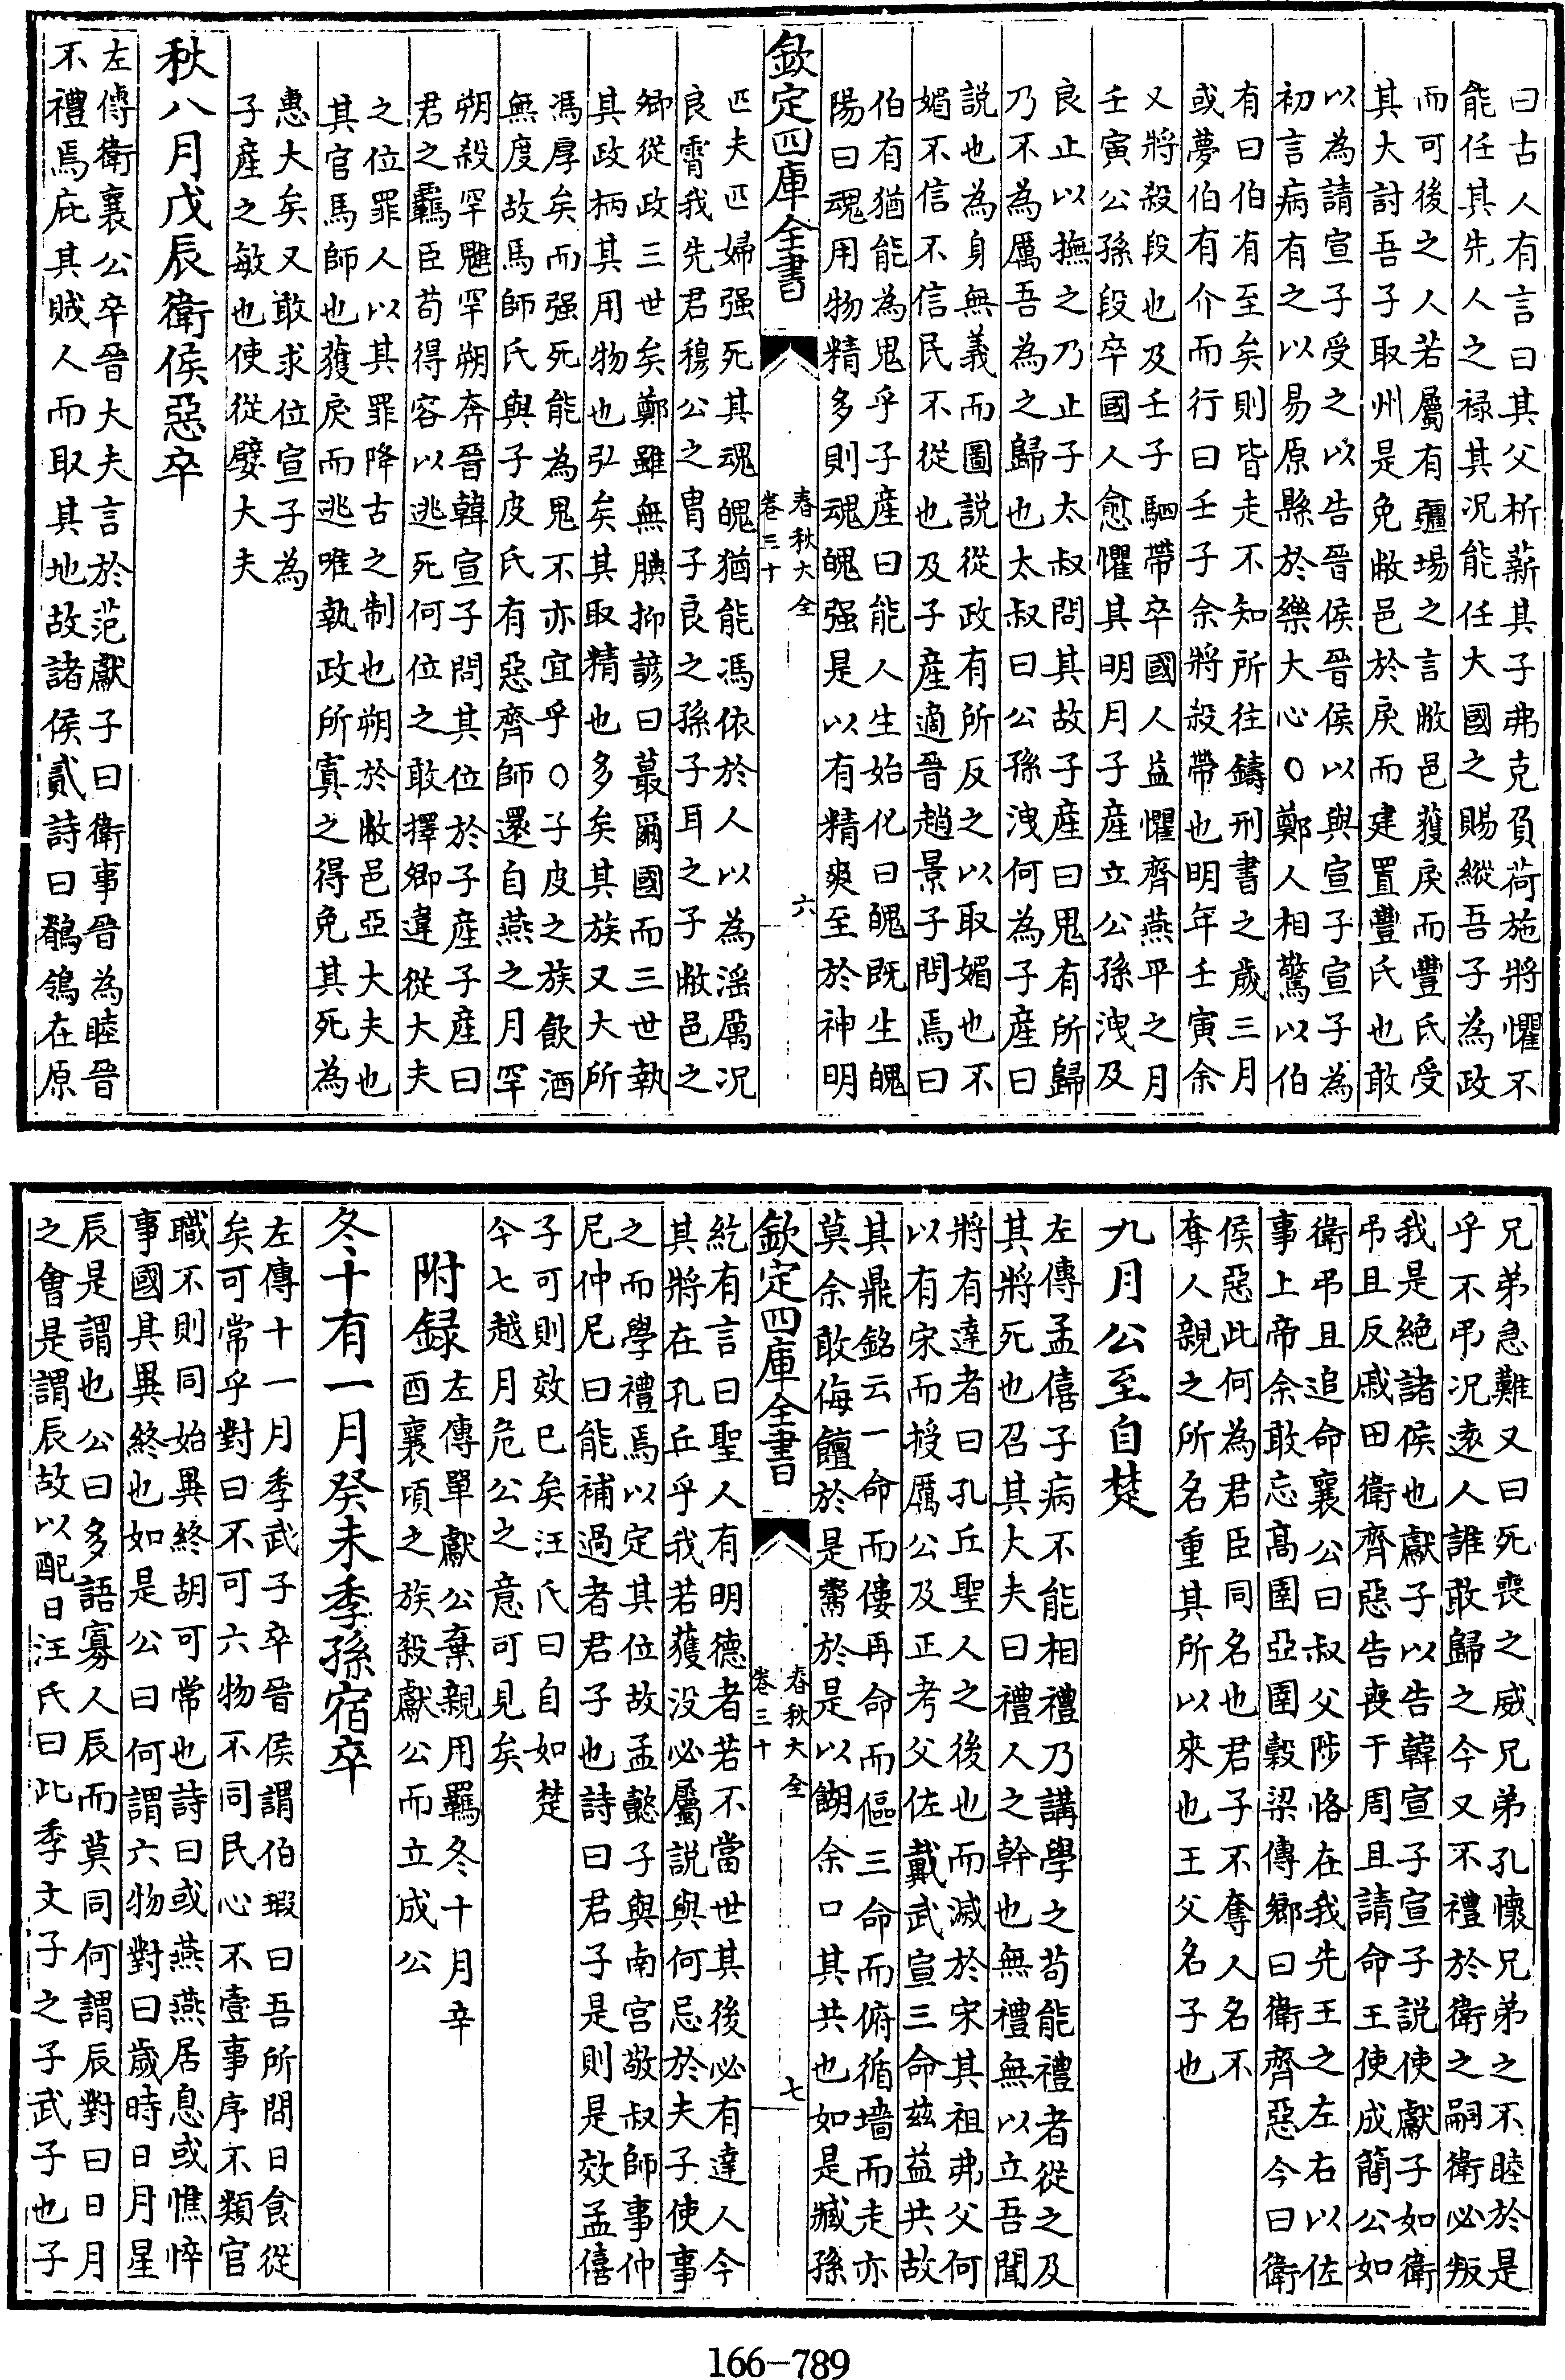 曰古人有言曰其父析薪其子弗克負荷施將懼不
能任其先人之禄其況能任大國之賜縱吾子為政
而可後之人若屬有疆場之言敝邑獲戾而豐氏受
其大討吾子取州是免敝邑於戾而建置豐氏也敢
以為請宣子受之以告晉侯晉侯以與宣子宣子為
初言病有之以易原縣於樂大心○鄭人相驚以伯
有曰伯有至矣則皆走不知所往鑄刑書之歲三月
或夢伯有介而行曰壬子余將殺帶也明年壬寅余
又將殺段也及壬子駟帶卒國人益懼齊燕平之月
壬寅公孫段卒國人愈懼其明月子產立公孫洩及
良止以撫之乃止子太叔問其故子產曰鬼有所歸
乃不為厲吾為之歸也太叔曰公孫洩何為子產曰
說也為身無義而圖說從政有所反之以取媚也不
媚不信不信民不從也及子產適晉趙景子問焉曰
伯有猶能為鬼乎子產曰能人生始化曰魄既生魄
陽曰魂用物精多則魂魄强是以有精爽至於神明
欽定四庫全書
春秋大全
卷三十
六
匹夫匹婦强死其魂魄猶能馮依於人以為淫厲况
良霄我先君穆公之胄子良之孫子耳之子敝邑之
卿從政三世矣鄭雖無腆抑諺曰蕞爾國而三世執
其政柄其用物也弘矣其取精也多矣其族又大所
馮厚矣而强死能為鬼不亦宜乎○子皮之族飲酒
無度故馬師氏與子皮氏有惡齊師還自燕之月罕
朔殺罕魋罕朔奔晉韓宣子問其位於子產子產曰
君之羈臣苟得容以逃死何位之敢擇卿違從大夫
之位罪人以其罪降古之制也朔於敝邑亞大夫也
其官馬師也獲戾而逃唯執政所寘之得免其死為
惠大矣又敢求位宣子為
子產之敏也使從嬖大夫
秋八月戊辰衛侯惡卒
左傳衛襄公卒晉大夫言於范獻子曰衛事晉為睦晉
不禮焉庇其賊人而取其地故諸侯貳詩曰鶺鴒在原
兄弟急難又曰死喪之威兄弟孔懷兄弟之不睦於是
乎不弔况逺人誰敢歸之今又不禮於衛之嗣衛必叛
我是絶諸侯也獻子以告韓宣子宣子説使獻子如衛
弔且反戚田衛齊惡告喪于周且請命王使成簡公如
衛弔且追命襄公曰叔父陟恪在我先王之左右以佐
事上帝余敢忘髙圉亞圉穀梁傳鄉曰衛齊惡今曰衛
侯惡此何為君臣同名也君子不奪人名不
奪人親之所名重其所以來也王父名子也
九月公至自楚
左傳孟僖子病不能相禮乃講學之苟能禮者從之及
其將死也召其大夫曰禮人之幹也無禮無以立吾聞
將有達者曰孔丘聖人之後也而滅於宋其祖弗父何
以有宋而授厲公及正考父佐戴武宣三命兹益共故
其鼎銘云一命而僂再命而傴三命而俯循墻而走亦
莫余敢侮饘於是鬻於是以餬余口其共也如是臧孫
欽定四庫全書
春秋大全
卷三十
七
紇有言曰聖人有明德者若不當世其後必有達人今
其將在孔丘乎我若獲没必屬説與何忌於夫子使事
之而學禮焉以定其位故孟懿子與南宫敬叔師事仲
尼仲尼曰能補過者君子也詩曰君子是則是效孟僖
子可則效已矣汪氏曰自如楚
今七越月危公之意可見矣
附録
左傳單獻公棄親用羈冬十月辛
酉襄頃之族殺獻公而立成公
冬十有一月癸未季孫宿卒
左傳十一月季武子卒晉侯謂伯瑕曰吾所問日食從
矣可常乎對曰不可六物不同民心不壹事序不類官
職不則同始異終胡可常也詩曰或燕燕居息或憔悴
事國其異終也如是公曰何謂六物對曰歲時日月星
辰是謂也公曰多語寡人辰而莫同何謂辰對曰日月
之會是謂辰故以配日汪氏曰此季文子之子武子也子
166-789